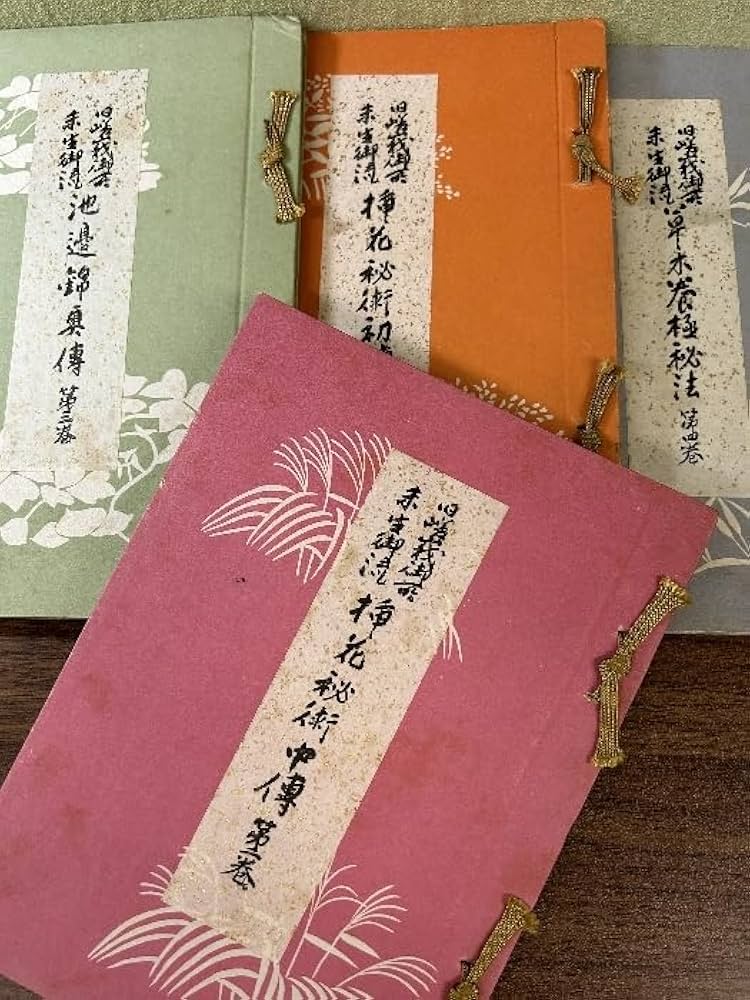 旧嵯峨御所
未生御流
池邊錦奥傳 第三巻
旧嵯峨御所
未生御流
挿花秘術初
旧嵯峨御所
未生御流
草木養極秘法 第四巻
旧嵯峨御所
未生御流
挿花秘術中傳 第二巻